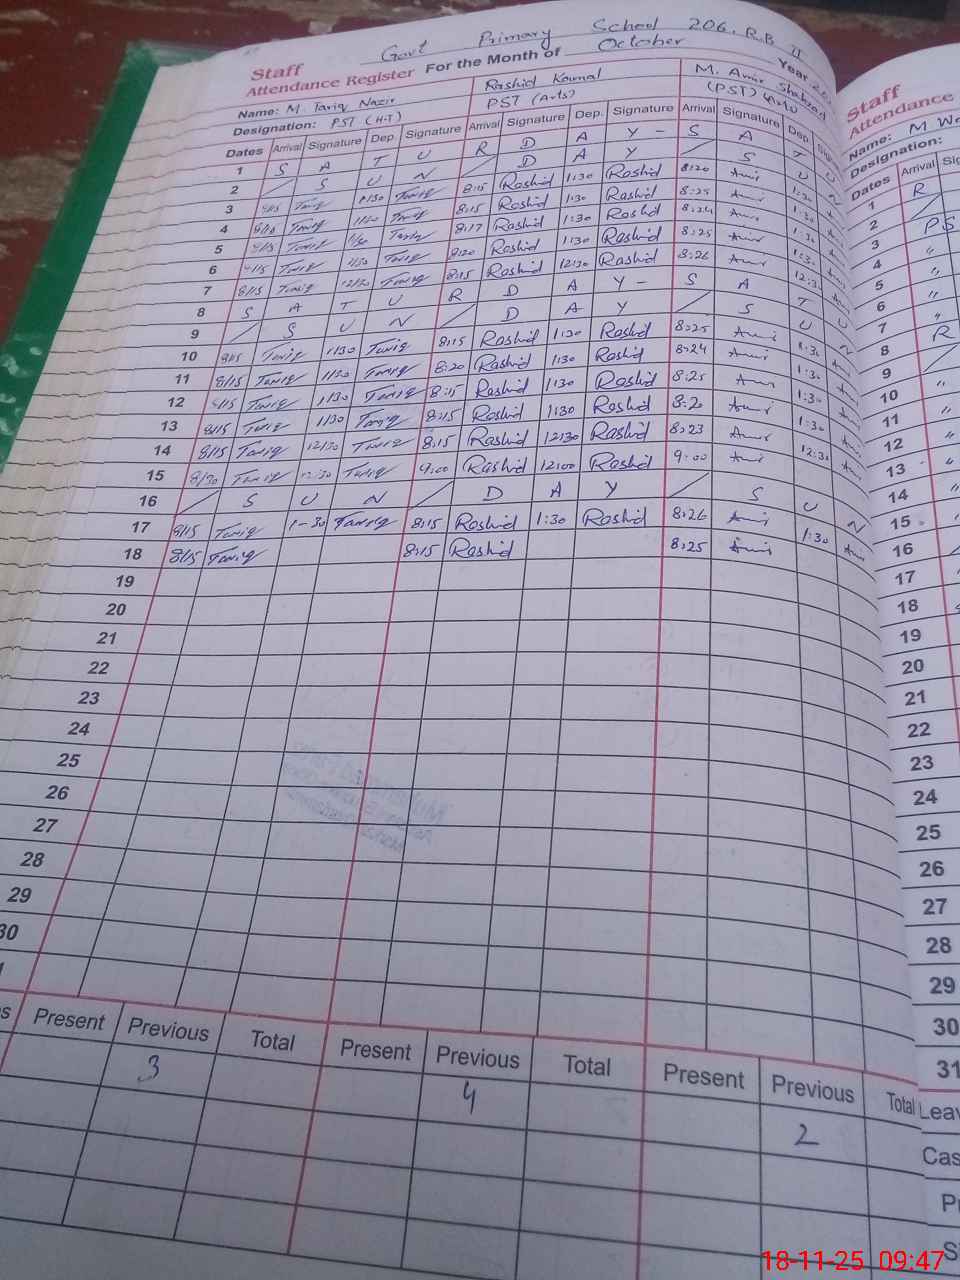 Govt Primary School 206. R.B II
Staff
Attendance Register For the Month of October Year
Name: M. Tariq Nazir Rashid Kamal M. Amir Shahzad
Designation: PST (H.T) PST (Arts) (PST)
Dates Arrival Signature Dep. Signature Arrival Signature Dep. Signature Arrival Signature Dep
1 S A T U R D A Y - S A T U
2 S U N D A Y S U N
3 8/15 Tariq 1/30 Tariq 8:15 Rashid 1:30 Rashid 8:20 Amir 1:30
4 Tariq Tariq 8:15 Rashid 1:30 Rashid 8:25 Amir 1:30
5 8/15 Tariq 1/30 Tariq 8:17 Rashid 1:30 Rashid 8:24 Amir 1:30
6 Tariq 1/30 Tariq 8:20 Rashid 1:30 Rashid 8:25 Amir 1:30
7 8/15 Tariq Tariq 8:15 Rashid 12:30 Rashid 8:26 Amir
8 S A T U R D A Y - S A T U
9 S U N D A Y S U N
10 8/15 Tariq 1/30 Tariq 8:15 Rashid 1:30 Rashid 8:25 Amir 1:30
11 8/15 Tariq 1/30 Tariq 8:20 Rashid 1:30 Rashid 8:24 Amir 1:30
12 8/15 Tariq 1/30 Tariq 8:15 Rashid 1:30 Rashid 8:25 Amir 1:30
13 8/15 Tariq 1/30 Tariq 8:15 Rashid 1:30 Rashid 8:20 Amir 1:30
14 8/15 Tariq 12/30 Tariq 8:15 Rashid 12:30 Rashid 8:23 Amir 12:30
15 8/30 Tariq Tariq 9:00 Rashid 12:00 Rashid 9:00 Amir
16 S U N D A Y S U N
17 8/15 Tariq 1-30 Tariq 8:15 Rashid 1:30 Rashid 8:26 Amir 1:30
18 8/15 Tariq 8:15 Rashid 8:25 Amir
19
20
21
22
23
24
25
26
27
28
29
30
Present Previous Total Present Previous Total Present Previous Total
3 4 2
Staff
Attendance
Name: M
Designation:
Dates Arrival
1 R
2
3 PS
4 "
5 "
6 "
7 "
8 R
9
10 "
11 "
12 "
13 "
14 "
15
16
17
18
19
20
21
22
23
24
25
26
27
28
29
30
31
18-11-25 09:47